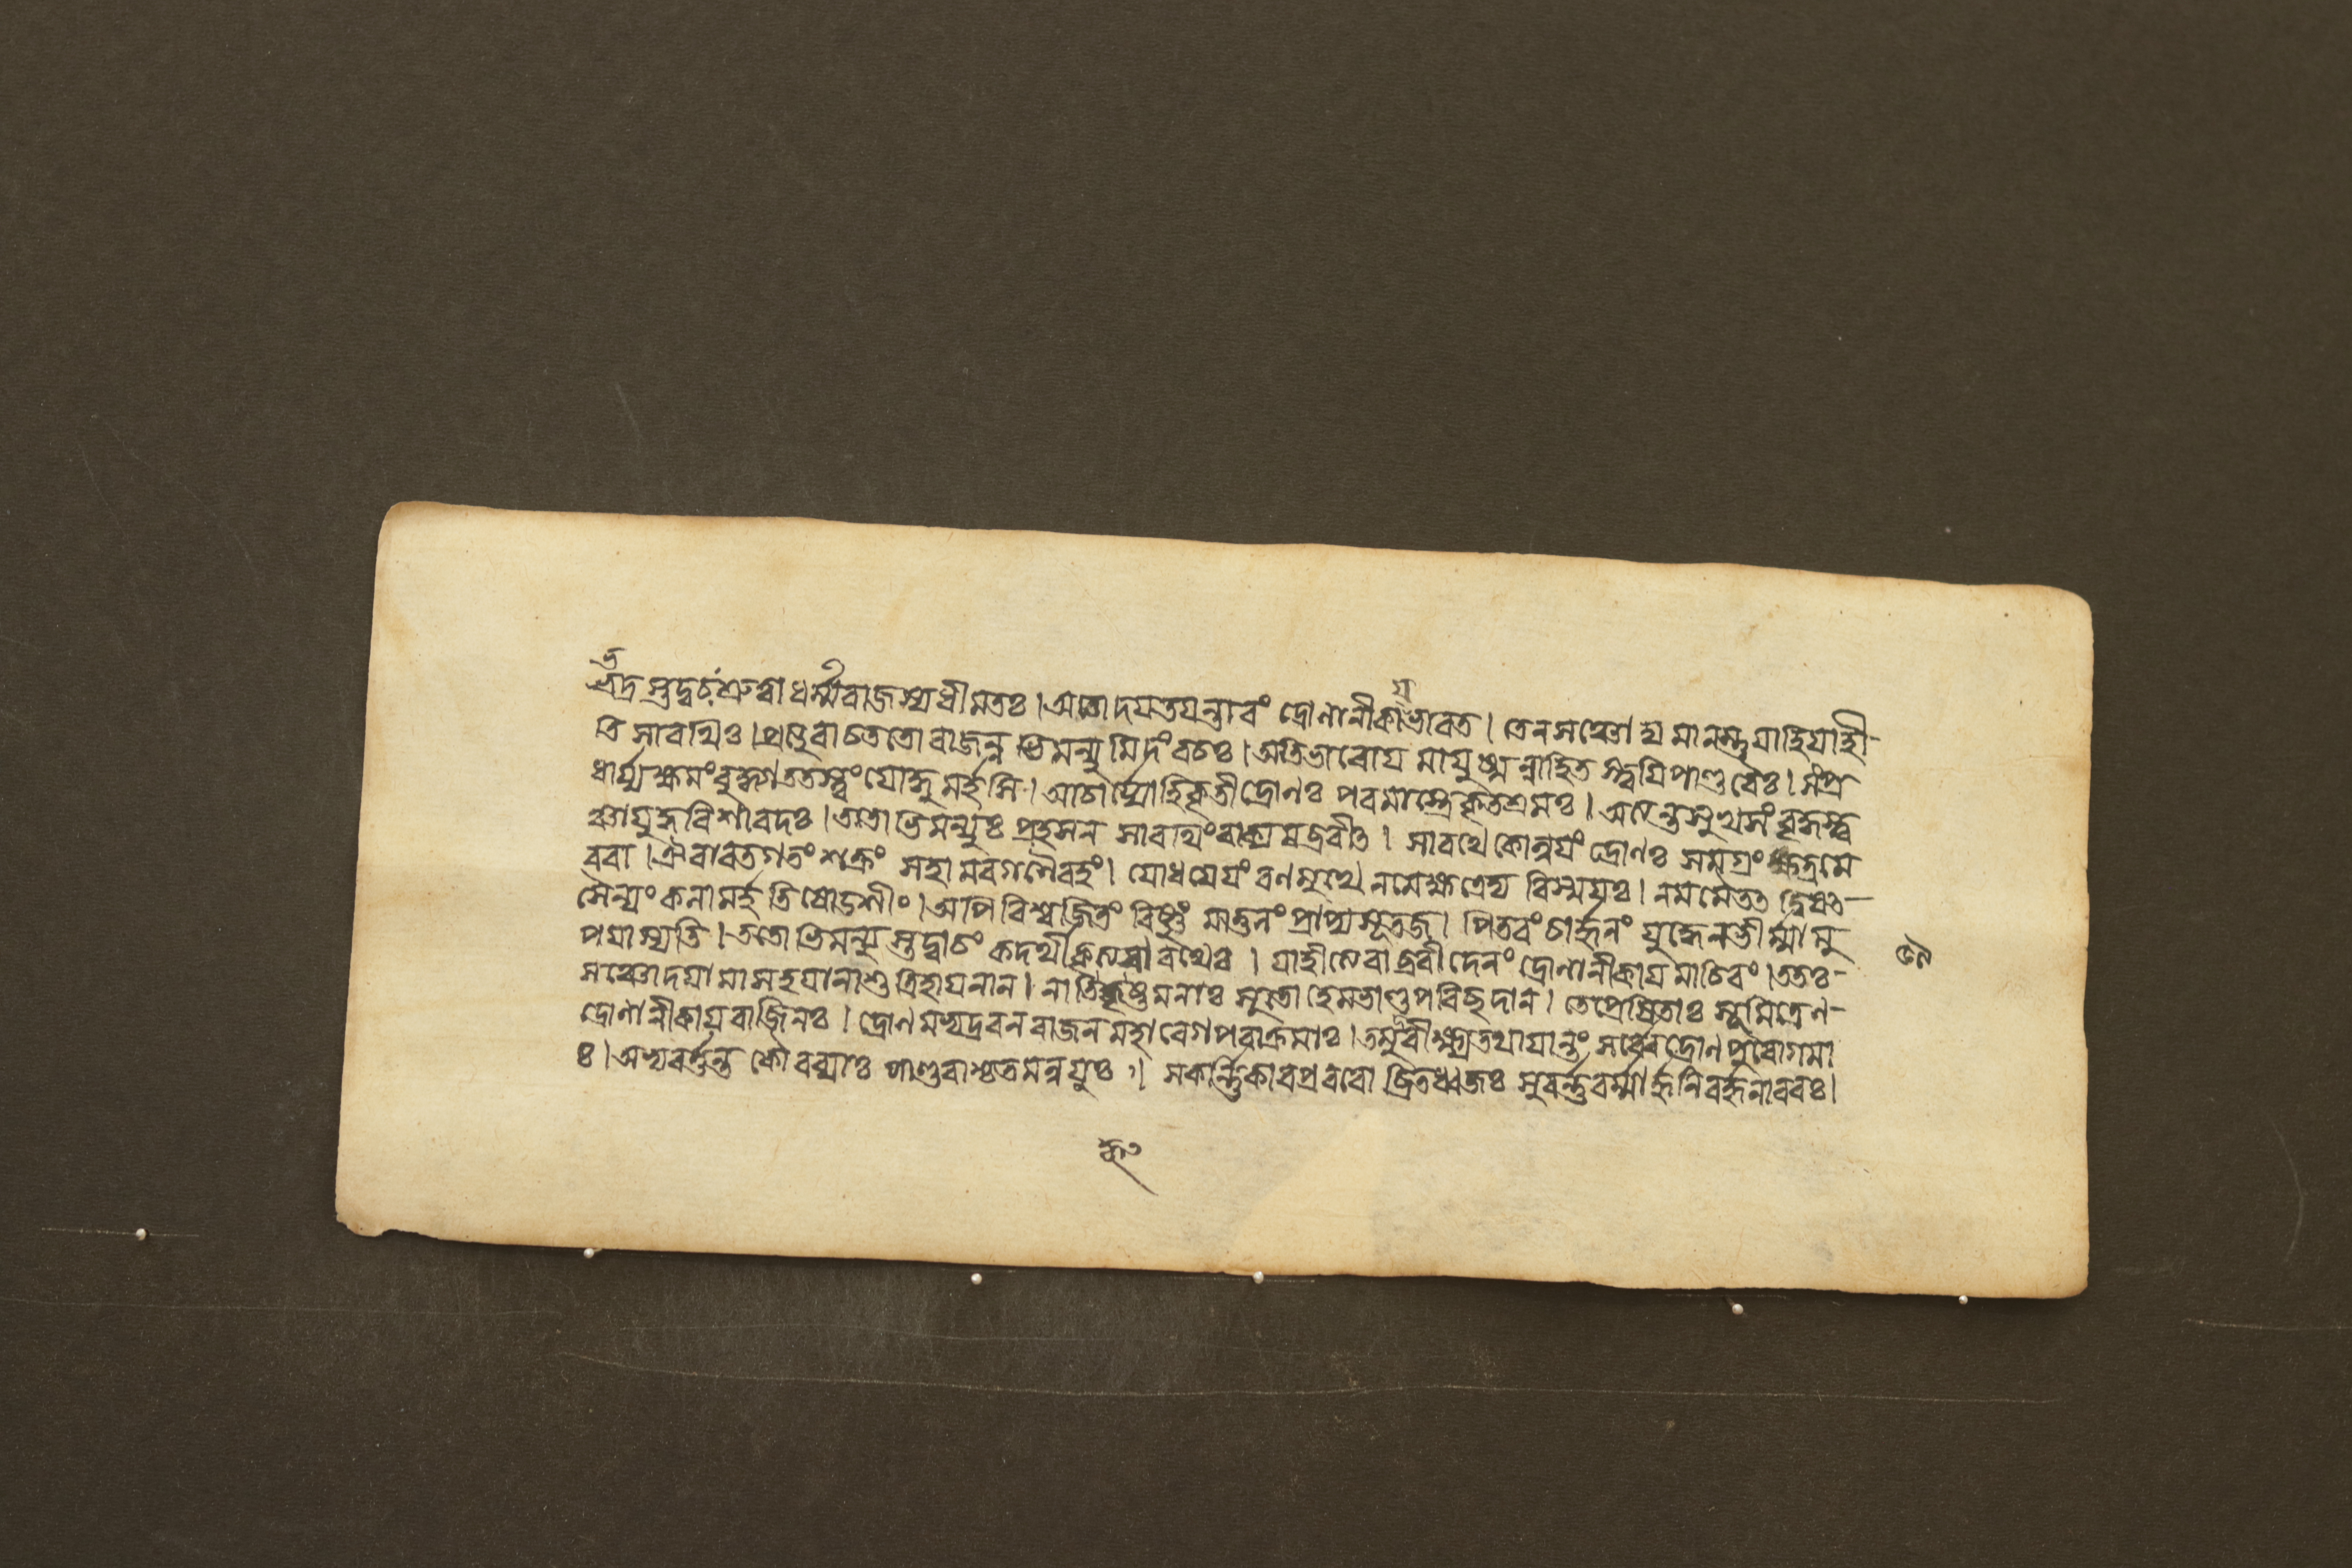 সৌভদ্রস্তদ্বচঃ শ্রুত্বা ধর্ম্মরাজস্য ধীমতঃ। অচোদযতযন্তারং দ্রোণানীকায ভারত। তেন সঞ্চোদ্যমানস্তু যাহি যাহী-
তি সারথিঃ। প্রত্যুবাচ ততো রাজন্নভিমন্যুমিদং বচঃ। অতিভারোয মাযুষ্মন্নাহিতস্ত্বযি পাণ্ডবৈঃ। সংপ্র
ধার্য্য ক্ষমং বুদ্ধ্যা ততস্ত্বং যোদ্ধুমর্হসি। আচার্য্যো হি কৃতী দ্রোণঃ পরমাস্ত্রে কৃতশ্রমঃ। অত্যন্তসুখসংবৃদ্ধস্ত্ব
ঞ্চাযুদ্ধবিশারদঃ। ততোভিমন্যুঃ প্রহসন সারথিং বাক্যমব্রবীত। সারথে কোন্বযং দ্রোণঃ সমগ্রং ক্ষত্রমে
ববা। ঐরাবতগতং শক্রং সহামরগণৈরহং। যোধযেযং রণমুখে নমেক্ষত্রেদ্য বিস্মযঃ। নমমৈতত দ্বিষত-
সৈন্যং কলামর্হতি ষোডশীং। অপি বিশ্বজিতং বিষ্ণুং মাতুলং প্রাপ্য সূতজ। পিতরং চার্জ্জুনং যুদ্ধে নভীর্ম্মামু
পযাস্যতি। ততোভিমন্যুস্তদ্বাচং কদর্থীকৃত্য সারথেঃ। যাহীত্যেবাব্রবীদেনং দ্রোণানীকায মাচিরং। ততঃ-
সঞ্চোদযামাস হযানাশু ত্রিহাযনান। নাতিহৃষ্টমনাঃ সূতো হেমভাণ্ডপরিছদান। তে প্রেষিতাঃ সুমিত্রেণ-
দ্রোণানীকায বাজিনঃ। দ্রোণমভ্যদ্রবন রাজন মহাবেগপরাক্রমাঃ। তমুদীক্ষ্য তথাযান্তং সর্ব্বে দ্রোণপুরোগমা
ঃ। অভ্যবর্ত্তন্ত কৌরব্যাঃ পাণ্ডবাশ্চ তমন্বযুঃ। সকর্ণিকারপ্রবরোচ্ছ্রিতধ্বজঃ সুবর্ণবর্ম্মার্জ্জুনি